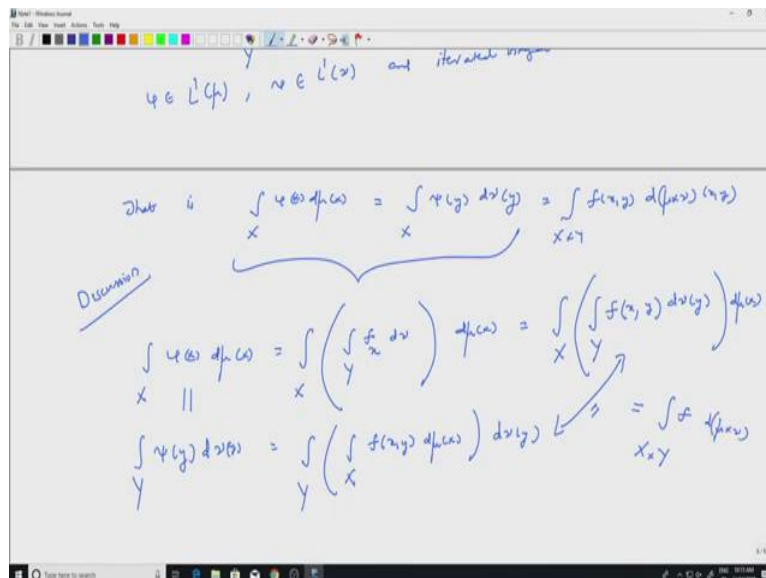 Note1 - Windows Journal
File Edit View Insert Actions Tools Help
Y
φ ∈ L¹(μ) , ψ ∈ L¹(ν) and iterated
That is ∫_X φ(x) dμ(x) = ∫_X ψ(y) dν(y) = ∫_{X×Y} f(x,y) d(μ×ν)(x,y)
Discussion
∫_X φ(x) dμ(x) = ∫_X ( ∫_Y f_x dν ) dμ(x) = ∫_X ( ∫_Y f(x, y) dν(y) ) dμ(x)
||
∫_Y ψ(y) dν(y) = ∫_Y ( ∫_X f(x,y) dμ(x) ) dν(y) = = ∫_{X×Y} f d(μ×ν)
Type here to search
ENG